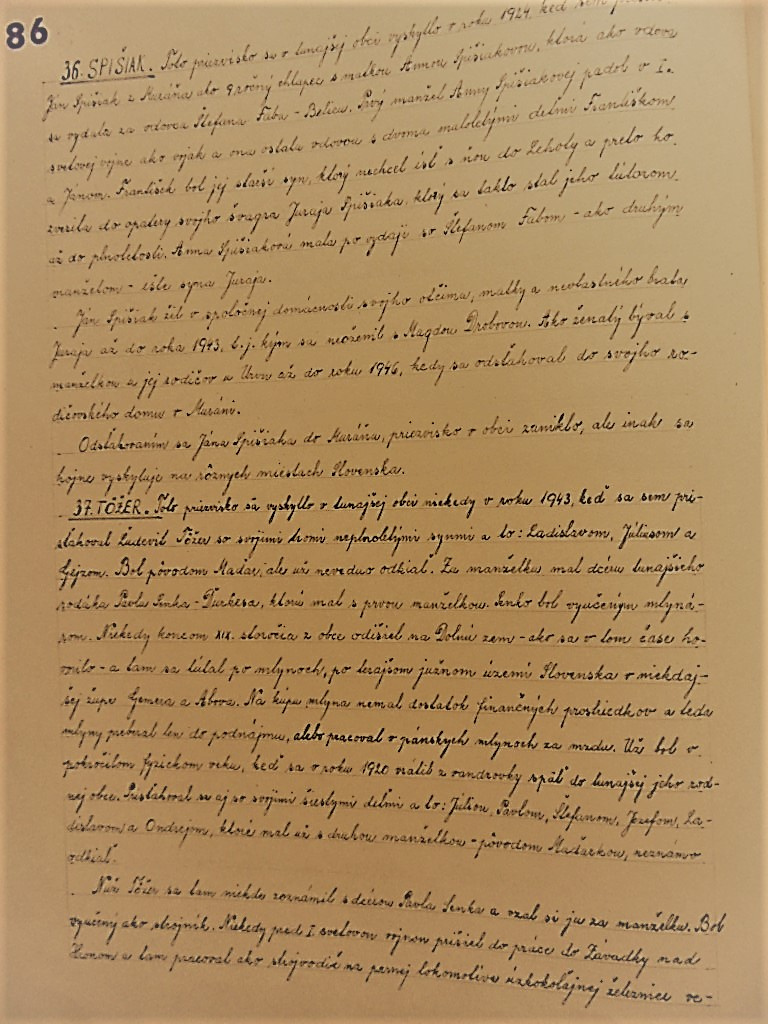 86
36. SPIŠIAK. Toto priezvisko sa v tunajšej obci vyskytlo v roku 1924, keď sem
Ján Spišiak z Muráňa ako 9 ročný chlapec s matkou Annou Spišiakovou, ktorá ako vdova
sa vydala za vdovca Štefana Faba - Belicu. Prvý manžel Anny Spišiakovej padol v I.
svetovej vojne ako vojak a ona ostala vdovou s dvoma maloletými deťmi Františkom
a Jánom. František bol jej starší syn, ktorý nechcel ísť s ňou do Lehoty a preto ho
zverila do opatery svojho švagra Juraja Spišiaka, ktorý sa takto stal jeho tútorom
až do plnoletosti. Anna Spišiaková mala po vydaji so Štefanom Fabom - ako druhým
manželom - ešte syna Juraja.
Ján Spišiak žil v spoločnej domácnosti svojho otčima, matky a nevlastného brata
Juraja až do roka 1943, t.j. kým sa neoženil s Magdou Drobovou. Ako ženatý býval s
manželkou a jej rodičov u Urvu až do roku 1946, kedy sa odsťahoval do svojho ro-
dičovského domu v Muráni.
Odsťahovaním sa Jána Spišiaka do Muráňa, priezvisko v obci zaniklo, ale inak sa
hojne vyskytuje na rôznych miestach Slovenska.
37. TÖŽER. Toto priezvisko sa vyskytlo v tunajšej obci niekedy v roku 1943, keď sa sem pri-
sťahoval Ľudevít Töžer so svojimi tromi neplnoletými synmi a to: Ladislavom, Júliusom a
Gejzom. Bol pôvodom Maďar, ale už nevedno odkiaľ. Za manželku mal dcéru tunajšieho
rodáka Pavla Senka - Ďurkesa, ktorú mal s prvou manželkou. Senko bol vyučeným mlyná-
rom. Niekedy koncom XIX. storočia z obce odišiel na Dolnú zem - ako sa v tom čase ho-
vorilo - a tam sa túlal po mlynoch, po terajšom južnom území Slovenska v niekdaj-
šej župe Gemera a Abova. Na kúpu mlyna nemal dostatok finančných prostriedkov a teda
mlyny preberal len do podnájmu, alebo pracoval v pánskych mlynoch za mzdu. Už bol v
pokročilom fyzickom veku, keď sa v roku 1920 vrátil z vandrovky späť do tunajšej jeho rod-
nej obce. Prisťahoval sa aj so svojimi šiestymi deťmi a to: Júliou, Pavlom, Štefanom, Jozefom, La-
dislavom a Ondrejom, ktoré mal už s druhou manželkou - pôvodom Maďarkou, neznámo
odkiaľ.
Nuž Töžer sa tam niekde zoznámil s dcérou Pavla Senka a vzal si ju za manželku. Bol
vyučený ako strojník. Niekedy pred I. svetovou vojnou prišiel do práce do Závadky nad
Hronom a tam pracoval ako strojvodič na parnej lokomotíve úzkokoľajnej železnice ve-